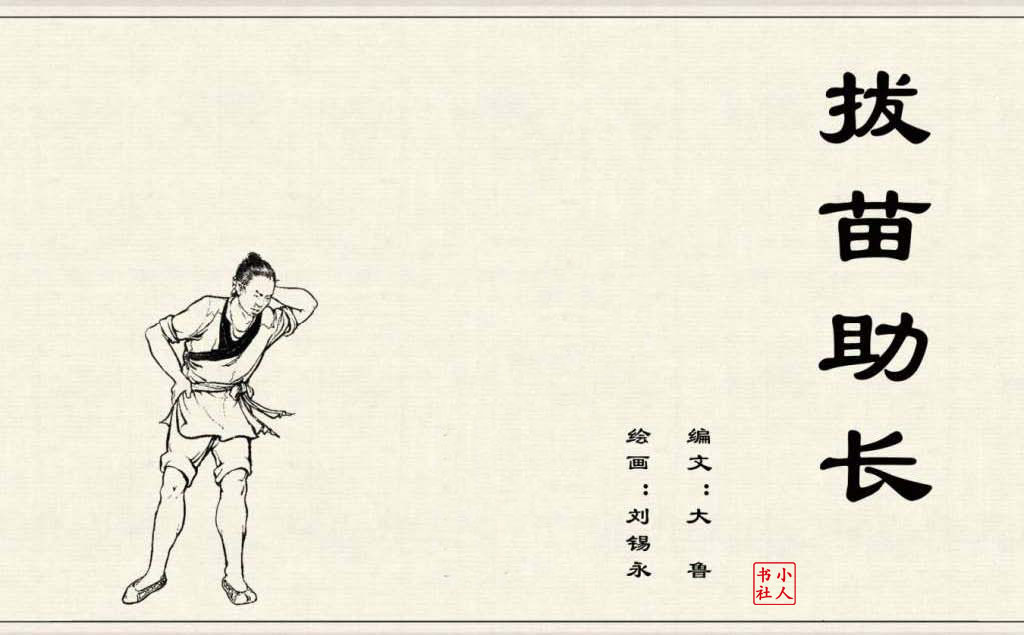 拔苗助长
编文：大鲁
绘画：刘锡永
小人
书社